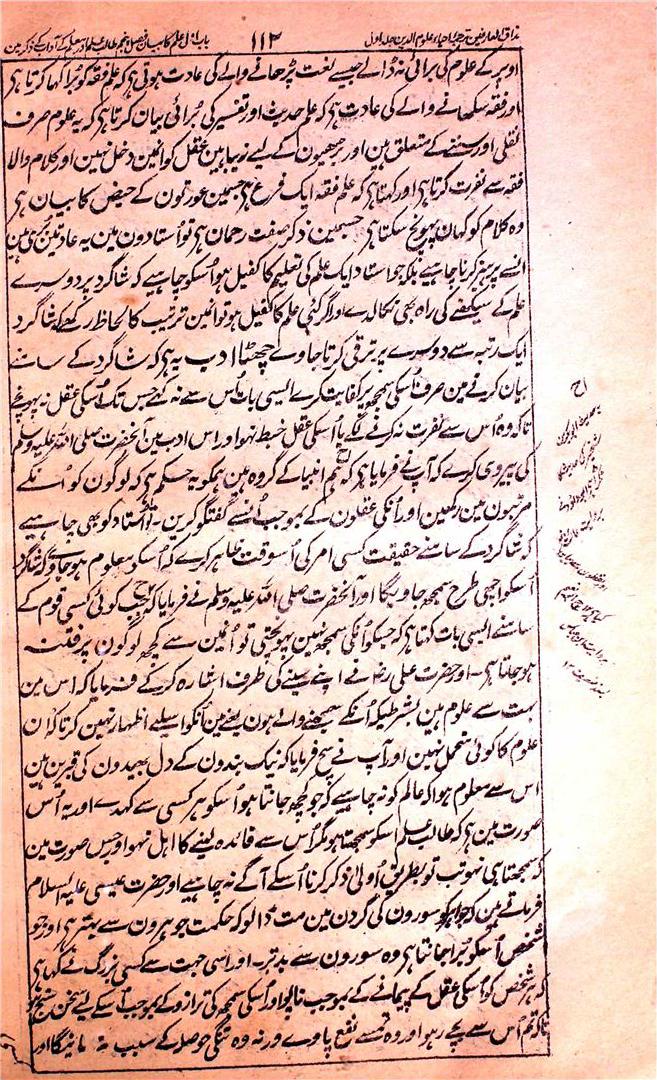 مذاق العارفین ترجمہ احیاء علوم الدین جلد اول
۱۱۲
باب اول علم کا بیان فصل پنجم طالب علم اور معلم کے آداب کے ذکر مین
اوپر کے علوم کی برائی نہ ڈالے جیسے لغت پڑھانے والے کی عادت ہوتی ہے کہ علم فقہ کو برا کہا کرتا ہے
اور فقہ سکھانے والے کی عادت ہے کہ علم حدیث اور تفسیر کی برائی بیان کرتا ہے کہ یہ علوم صرف
نقلی اور سننے کے متعلق ہین اور بڑھیون کے لیے زیبا ہین عقل کو انمین دخل نہین اور کلام والا
فقہ سے نفرت کرتا ہے اور کہتا ہے کہ علم فقہ ایک فرع ہے جسمین عورتون کے حیض کا بیان ہے
وہ کلام کو کہان پہونچ سکتا ہے جسمین ذکر صفت رحمان ہے تو استادون مین یہ عادتین بری ہین
انسے پرہیز کرنا چاہیے بلکہ جو استاد ایک علم کی تعلیم کا کفیل ہو اسکو چاہیے کہ شاگرد پر دوسرے
علم کے سیکھنے کی راہ بھی نکالدے اور اگر کئی علم کا کفیل ہو تو انمین ترتیب کا لحاظ رکھے کہ شاگرد
ایک رتبہ سے دوسرے پر ترقی کرتا جاوے چھٹا ادب یہ ہے کہ شاگرد کے سامنے
بیان کرنے مین صرف اسکی سمجھ پر کفایت کرے ایسی بات اس سے نہ کہے جس تک اسکی عقل نہ پہونچے
تاکہ وہ اس سے نفرت نہ کرنے لگے یا اسکی عقل خبط نہو اور اس ادب مین آنحضرت صلی اللہ علیہ وسلم
کی پیروی کرے کہ آپ نے فرمایا ہے کہ ہم انبیا کے گروہ ہین ہمکو یہ حکم ہے کہ لوگون کو انکے
مرتبون مین رکھین اور انکی عقلون کے بموجب انسے گفتگو کرین۔ تو استاد کو بھی چاہیے
کہ شاگرد کے سامنے حقیقت کسی امر کی اسوقت ظاہر کرے کہ اسکو معلوم ہو جاوے کہ شاگرد
اسکو اچھی طرح سمجھ جاویگا اور آنحضرت صلی اللہ علیہ وسلم نے فرمایا کہ جب کوئی کسی قوم کے
سامنے ایسی بات کہتا ہے کہ جسکو انکی سمجھ نہین پہونچتی تو انمین سے کچھ لوگون پر فتنہ
ہو جاتا ہے۔ اور حضرت علی رض نے اپنے سینے کی طرف اشارہ کر کے فرمایا کہ اس مین
بہت سے علوم ہین بشرطیکہ انکے سمجھنے والے ہون یعنے مین انکو اسلیے اظہار نہین کرتا کہ ان
علوم کا کوئی متحمل نہین اور آپ نے سچ فرمایا کہ نیک بندون کے دل بھیدون کی قبرین ہین
اس سے معلوم ہوا کہ عالم کو نہ چاہیے کہ جو کچھ جانتا ہو اسکو ہر کسی سے کہدے اور یہ اس
صورت مین ہے کہ طالب علم اسکو سمجھتا ہو مگر اس سے فائدہ لینے کا اہل نہو اور جس صورت مین
کہ سمجھتا ہی نہو تب تو بطریق اولیٰ ذکر کرنا اسکے آگے نہ چاہیے اور حضرت عیسی علیہ السلام
فرماتے ہین کہ جواہر کو سورون کی گردن مین مت ڈالو کہ حکمت جوہرون سے بہتر ہے اور جو
شخص اسکو برا جانتا ہے وہ سورون سے بدتر۔ اور اسی جہت سے کسی بزرگ نے کہا ہے
کہ ہر شخص کو اسکی عقل کے پیمانے کے بموجب ناپو اور اسکی سمجھ کی ترازو کے بموجب اسکے لیے سخن سنجو
تاکہ تم اس سے بچے رہو اور وہ تمسے نفع پاوے ورنہ وہ تنگی حوصلہ کے سبب نہ مانیگا اور